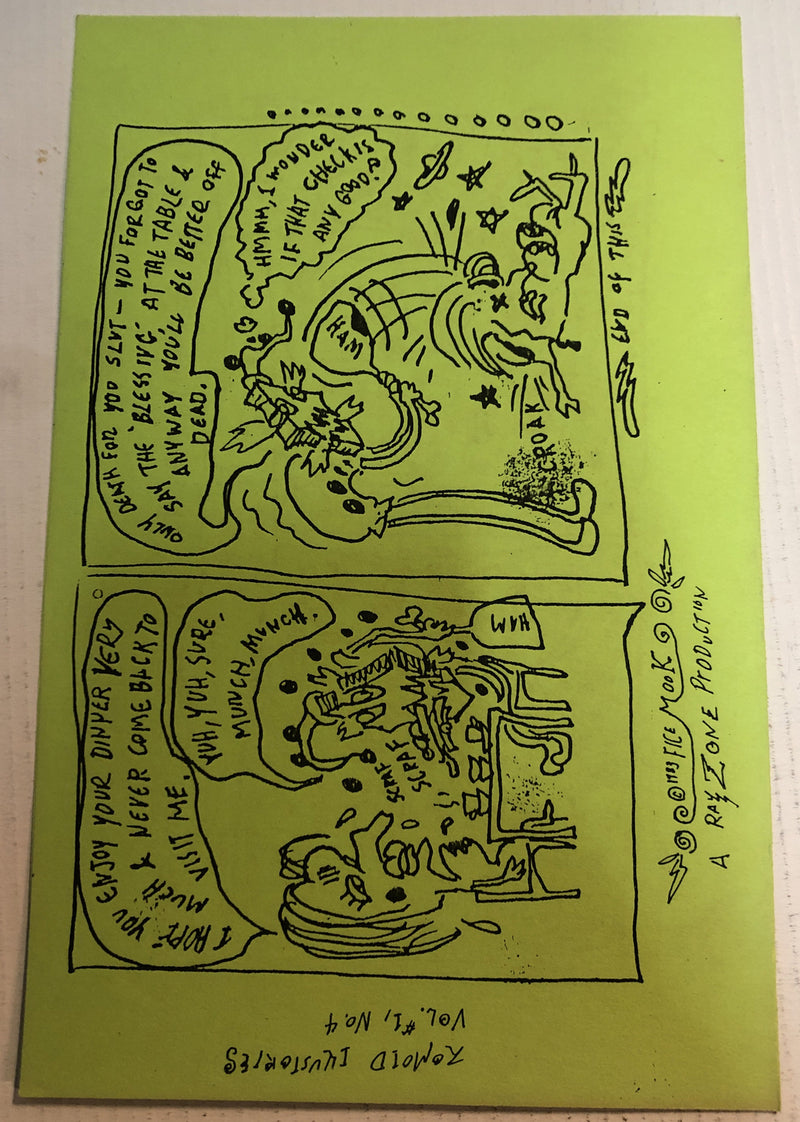 ZOMOID ILLUSTORIES
VOL. #1, No. 4
I HOPE YOU ENJOY YOUR DINNER VERY
MUCH & NEVER COME BACK TO
VISIT ME.
YUH, YUH, SURE,
MUNCH, MUNCH.
SCRAF
SCRAF
HAM
ONLY DEATH FOR YOU SLUT — YOU FORGOT TO
SAY THE "BLESSING" AT THE TABLE &
ANYWAY YOU'LL BE BETTER OFF
DEAD.
HMMM, I WONDER
IF THAT CHECK IS
ANY GOOD?
HAM
CROAK
END OF THIS
© 1983 MOOK
A RAY ZONE PRODUCTION